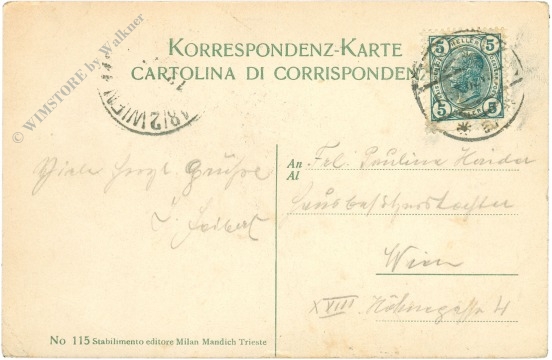 © WIMSTORE by Walkner
KORRESPONDENZ-KARTE
CARTOLINA DI CORRISPONDEN
5 HELLER 5
5 5
18/2 WIEN
Viele herzl. Grüße
An Frl. Paulina Haider
Al
Hausbesitzerstochter
Wien
XVIII Höhnegasse 4
No 115 Stabilimento editore Milan Mandich Trieste